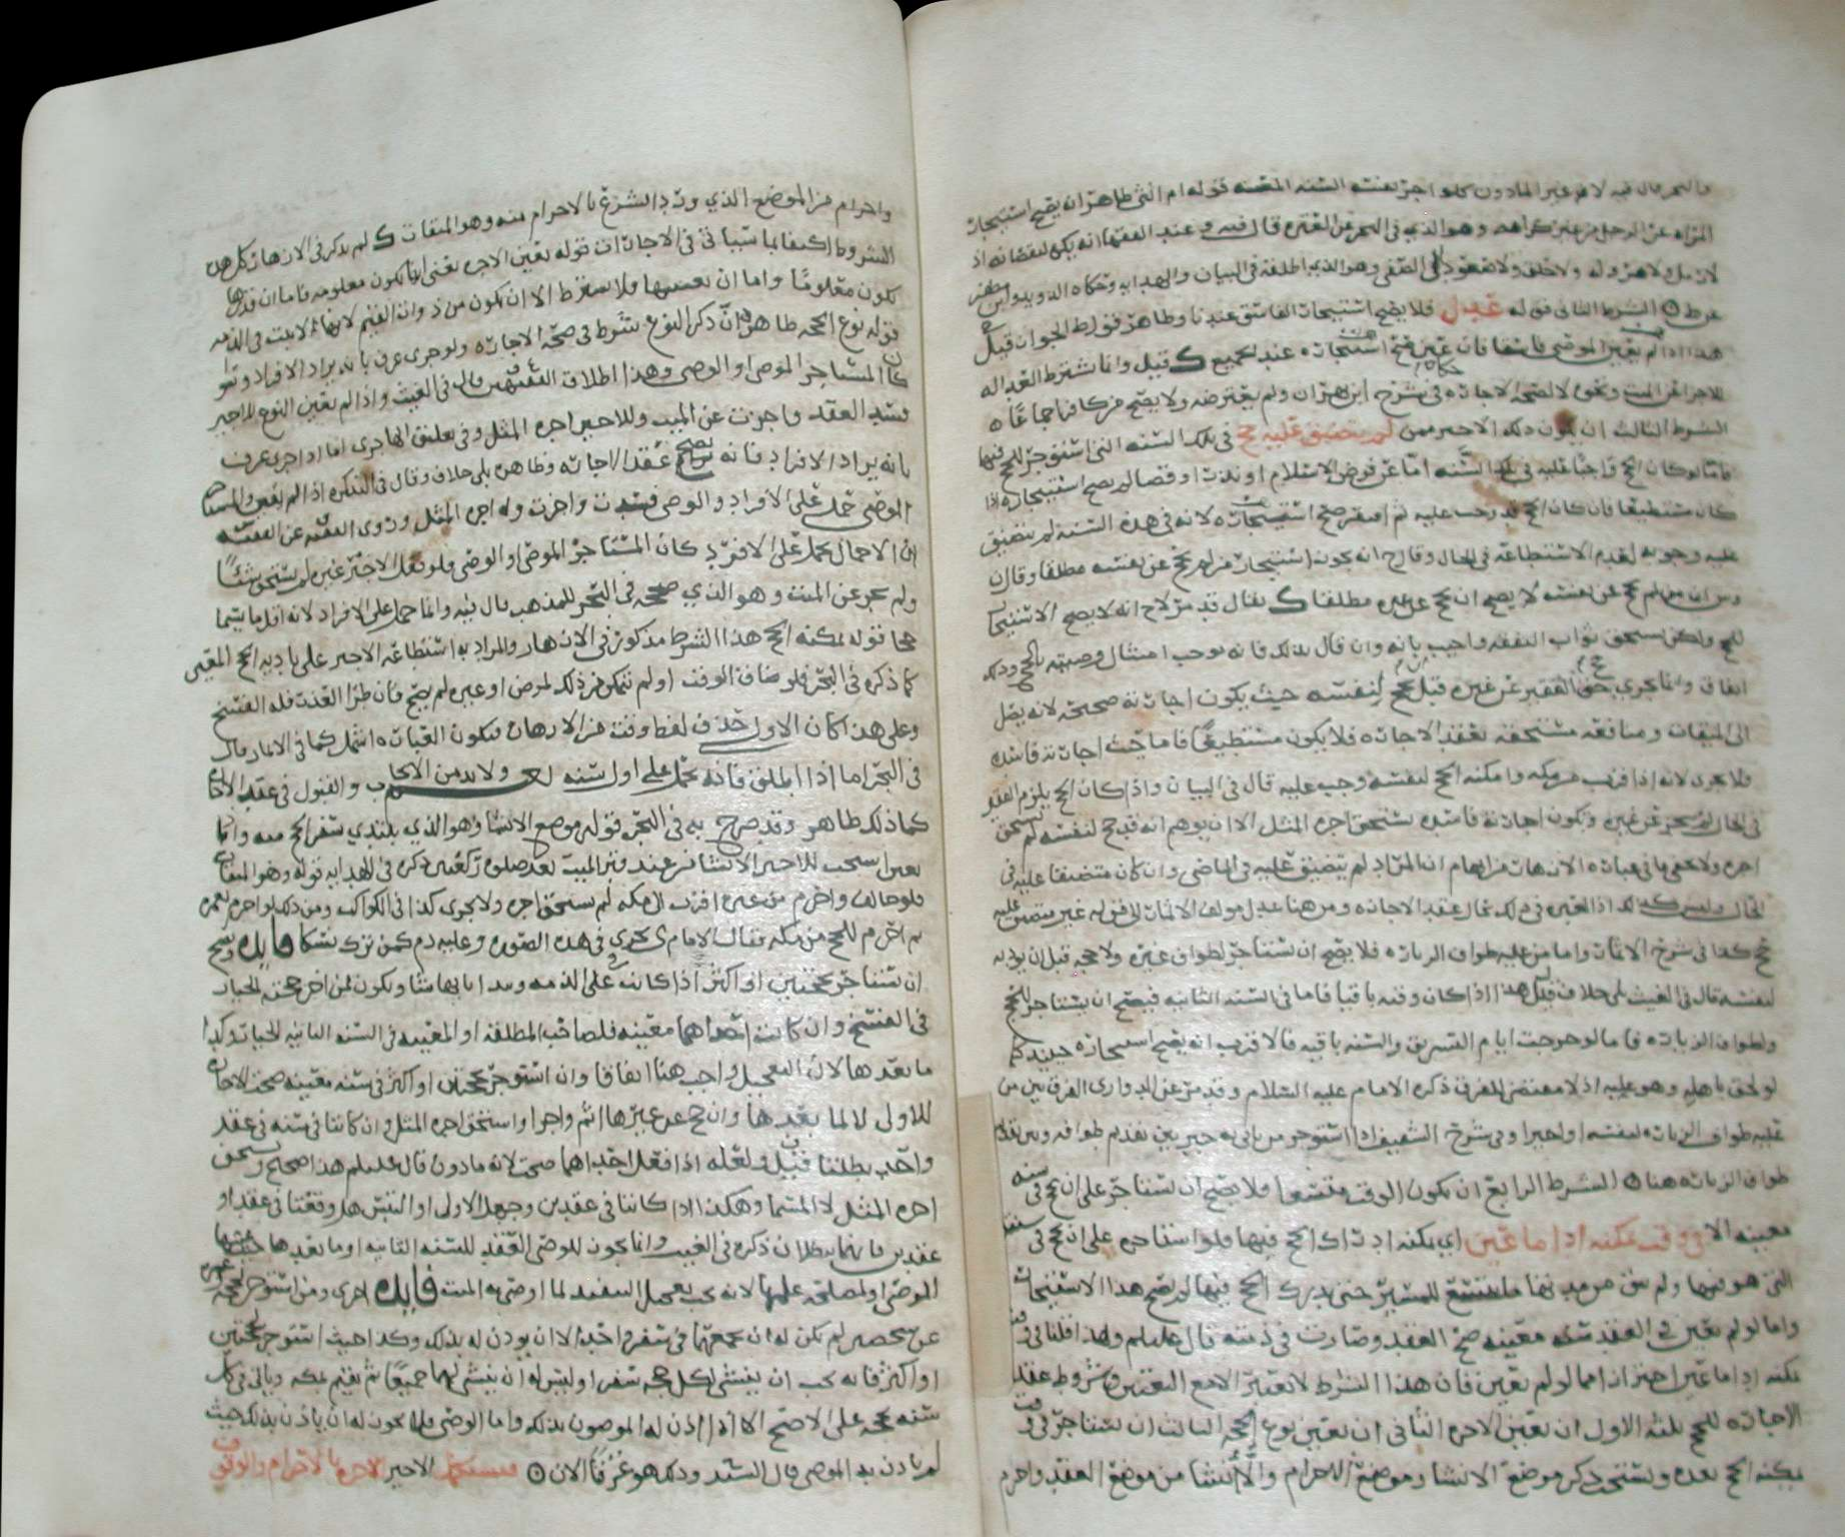 المراه عن الرجل من غير كراهه وهو الذي في البحر عن العتره قال فيه وعند الفقها انه يكره لنقصانها اذ
لا رمل ولا هروله ولا حلق ولا صعود الى الصفى وهو الذي اطلقه في البيان والهدايه وحكاه الدويد
الشرط الثاني قوله عدل فلا يصح استيجار الفاسق عندنا وظاهر قولـ ط الجواز قيل
هذا اذا لم يعين الموصي فاسقا فان عين صح استيجاره عند الجميع ك قيل وانما تشترط العداله
للاجزا عن الميت ونحوه لا لصحه الاجاره في شرح ابن بهران ولم يعترضه ولا يصح من كافر اجماعا ه
الشرط الثالث ان يكون ذلك الاجير ممن لم يتضيق عليه حج في تلك السنه التي استؤجر للحج فيها
فاما لو كان الحج واجبا عليه في تلك السنه اما عن فرض الاسلام او نذر او قضا لم يصح استيجاره اذا
كان مستطيعا فان كان الحج قد وجب عليه ثم افتقر صح استيجاره لانه في هذه السنه لم يتضيق
عليه وجوبه لعدم الاستطاعه في الحال وقال ح انه يجوز استيجار من لم يحج عن نفسه مطلقا وقال ن
وس ان من لم يحج عن نفسه لا يصح ان يحج عن غيره مطلقا ك يقال قد مر لاح انه لا يصح الاستيجار
للحج ولكن يستحق ثواب النفقه واجيب بانه وان قال بذلك فانه يوجب امتثال وصيته بالحج وذلك
اتفاق وانما يجزي حج الفقير عن غيره قبل حج لنفسه حيث يكون اجارته صحيحه لانه يصل
الى الميقات ومنافعه مستحقه بعقد الاجاره فلا يكون مستطيعا فاما حيث اجارته فاسده
فلا يجزي لانه اذا قرب من مكه وامكنه الحج لنفسه وجب عليه قال في البيان واذا كان الحج يلزم الفقير
في الحال لم يجز عن غيره وتكون اجارته فاسده يستحق اجره المثل الا ان يوهم انه قد حج لنفسه لم يستحق
اجره ولا يخفى ما في عباره الازهار من ايهام ان المراد لم يتضيق عليه في الماضي وان كان متضيقا عليه في
الحال وليس كذلك اذ العبره في ذلك بحال عقد الاجاره ومن هنا عدل مولف الاثمار الى قوله غير متضيق عليه
حج كذا في شرح الاثمار واما من عليه طواف الزياره فلا يصح ان يستاجر لطواف غيره ولا حجه قبل ان يوديه
لنفسه قال في الغيث بلى خلاف قيل هذا اذا كان وقته باقيا فاما في السنه الثانيه فيصح ان يستاجر للحج
ولطواف الزياره فاما لو خرجت ايام التشريق والسنه باقيه فالاقرب انه يصح استيجاره حينئذ كما
لو لحق باهله وهو عليه اذ لا مقتضى للفرق ذكره الامام عليه السلام وقد مر عن الدواري الفرق بين من
عليه طواف الزياره لنفسه او اجيرا وفي شرح
طواف الزياره هنا ه الشرط الرابع ان يكون الوقت متسعا فلا يصح ان يستاجر على ان يحج في سنه
معينه الا في وقت يمكنه اذا ما عين اي يمكنه ادراك الحج فيها فلو استاجره على ان يحج في
التي هو فيها ولم يبق من مدتها ما يتسع للمسير حتى يدرك الحج فيها لم يصح هذا الاستيجار
واما لو لم يعين في العقد سنه معينه صح العقد وصارت في ذمته قال عليلم ولهذا قلنا في وقت
يمكنه اذا ما عين احتراز امما لو لم يعين فان هذا الشرط لا يعتبر الا مع التعيين وشروط عقد
الاجاره للحج ثلثه الاول ان يعين الاجره الثاني ان يعين نوع الحجه الثالث ان يستاجر في وقت
يمكنه الحج بعده ويستحب ذكر موضع الانشا وموضع الاحرام والا انشا من موضع العقد واحرم
واحرام من الموضع الذي ورد الشرع بالاحرام منه وهو الميقات ك لم يذكر في الازهار كل هذه
الشروط اكتفا بما سياتي في الاجارات قوله تعين الاجره يعني انها تكون معلومه فاما ان قدرها
يكون معلوما واما ان تعينها فلا يشترط الا ان تكون من ذوات القيم لانها لا تثبت في الذمه
قوله نوع الحجه ظاهره ان ذكر النوع شرط في صحه الاجاره ولو جرى عرف بانه يراد الافراد وسوا
كان المستاجر الموصي او الوصي وهذا اطلاق الفقيهين قال في الغيث واذا لم يعين النوع للاجير
فسد العقد واجزت عن الميت وللاجير اجره المثل وفي تعليق الهاجري اما اذا جرى عرف
بانه يراد الافراد فانه يصح عقد الاجاره وظاهره بلى خلاف وقال في التذكره اذا لم يعين المستاجر
الموصي حمل على الافراد والوصي فسدت واجزت وله اجره المثل وروى الفقيه عن الفقيه
ان الاجمال يحمل على الافراد كان المستاجر الموصي او الوصي فلو فعل الاجير غيره لم يستحق شيئا
ولم يجز عن الميت وهو الذي صححه في البحر للمذهب قال فيه وانما حمل على الافراد لانه اقل ما يسمى
حجا قوله يمكنه الحج هذا الشرط مذكور في الازهار والمراد به استطاعه الاجير على تاديه الحج المعين
كما ذكره في البحر فلو ضاق الوقت او لم يتمكن من ذلك لمرض او غيره لم يصح فان طرا العذر فله الفسخ
وعلى هذا كان الاولى حذف لفظ وقت من الازهار فتكون العباره اشمل كما في الاثمار قال
في البحر اما اذا اطلق فانه يحمل على اول سنه نعم ولا بد من الايجاب والقبول في عقد الاجاره
كما ذلك ظاهر وقد صرح به في البحر قوله موضع الانشا وهو الذي يبتدي سفر الحج منه وانما
يستحب للاجير الانشا من عند قبر الميت بعد صلوه ركعتين ذكره في الهدايه قوله وهو الميقات
فلو خالف واحرم من غيره اقرب الى مكه لم يستحق اجره ولا يجزي كذا في الكواكب ومن ذلك لو احرم بعمره
ثم احرم للحج من مكه فقال الامام ى يجزي في هذه الصوره وعليه دم كمن ترك نسكا فايده ويصح
ان يستاجر بحجتين او اكثر اذا كانت على الذمه ويبدا بايهما شا ويكون لمن اخر حجته الخيار
في الفسخ وان كانت احداهما معينه فلصاحب المطلقه او المعينه في السنه الثانيه الخيار وكذا
ما بعدها لان التعجيل واجب هنا اتفاقا وان استؤجر بحجتين او اكثر في سنه معينه صحت الاجاره
للاولى لا لما بعدها وان حج عن غيرها اثم واجزا واستحق اجره المثل وان كانتا في سنه في عقد
واحد بطلتا قيل ولعله اذا فعل احداهما صحت لانه مادون قال عليلم هذا صحيح ويستحق
اجره المثل لا المسما وهكذا اذا كانتا في عقدين وجهل الاولى او التبس هل وقعتا في عقد او
عقدين فانهما يبطلان ذكره في الغيث وانما يجوز للوصي العقد للسنه الثانيه او ما بعدها حيث عينها
الموصي او لمصلحه علمها لانه يجب تعجيل التنفيذ لما اوصى به الميت فايده اخرى ومن استؤجر لحجه وعمره
عن شخص لم يكن له ان يجمعهما في سفر واحد الا ان يوذن له بذلك وكذا حيث استؤجر بحجتين
او اكثر فانه يجب ان ينشي لكل حجه سفرا وليس له ان ينشي لهما جميعا ثم يقيم بمكه وياتي في كل
سنه بحجه على الاصح الا اذا اذن له الموصون بذلك واما الوصي فلا يجوز له ان ياذن بذلك حيث
لم ياذن به الموصي قال السيد وذلك هو عرفا الان ه فيستكمل الاجير الاجره بالاحرام والوقوف